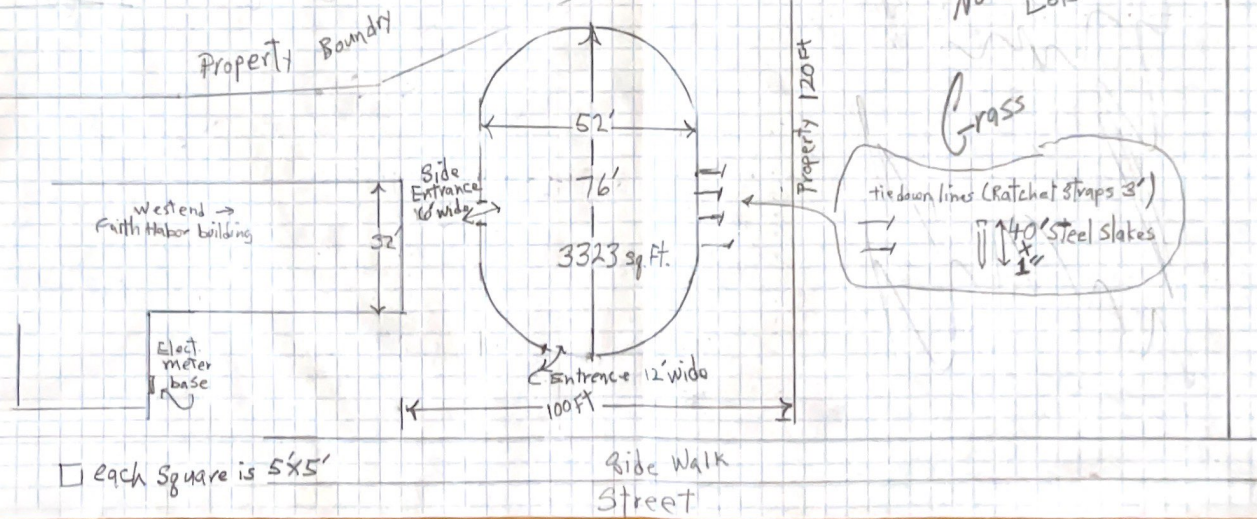 No
Property Boundry
Property 120Ft
Grass
52'
76'
3323 sq.Ft.
Side
Entrance
wide
Westend →
Faith Habor building
32'
tie down lines (Ratchet Straps 3')
40' Steel Stakes
x
1"
Elect.
meter
base
Entrence 12' wide
100Ft
each Square is 5'X5'
Side Walk
Street